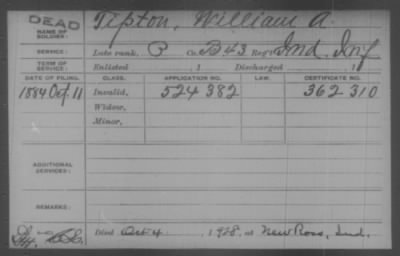 DEAD
NAME OF SOLDIER: Tipton, William A.
SERVICE: Late rank, P Co. B 43 Reg't Ind. Inf
TERM OF SERVICE: Enlisted , 1 Discharged , 1
DATE OF FILING. CLASS. APPLICATION NO. LAW. CERTIFICATE NO.
1884 Oct 11 Invalid, 524 382 362 310
Widow,
Minor,
ADDITIONAL SERVICES:
REMARKS:
Died Oct 4 1928, at New Ross, Ind.